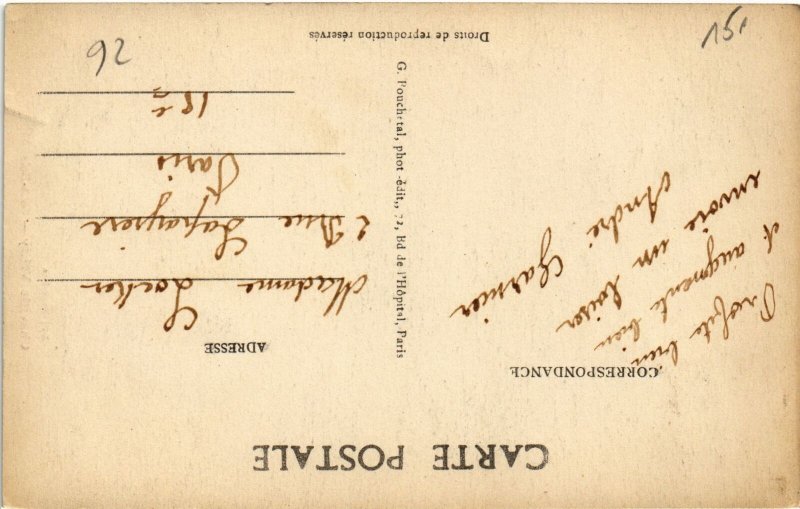 CARTE POSTALE
CORRESPONDANCE
Profite bien
et augmente bien
envoie un baiser
André Garnier
ADRESSE
Madame
2 Rue Lapeyrère
Paris
18e
G. Fouchetal, phot.-édit., 72, Bd de l'Hôpital, Paris
Droits de reproduction réservés
92
15,